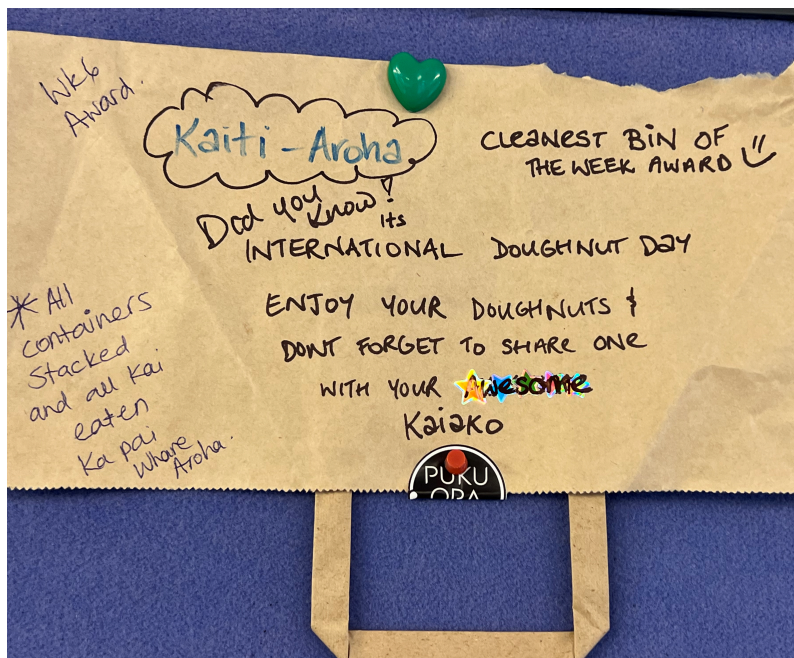 Wk6
Award.
Kaiti - Aroha
CLEANEST BIN OF
THE WEEK AWARD
Did you
know!
its
INTERNATIONAL DOUGHNUT DAY
ENJOY YOUR DOUGHNUTS &
DONT FORGET TO SHARE ONE
WITH YOUR Awesome
Kaiako
* All
containers
Stacked
and all Kai
eaten
Ka pai
Whare
Aroha.
PUKU
ORA